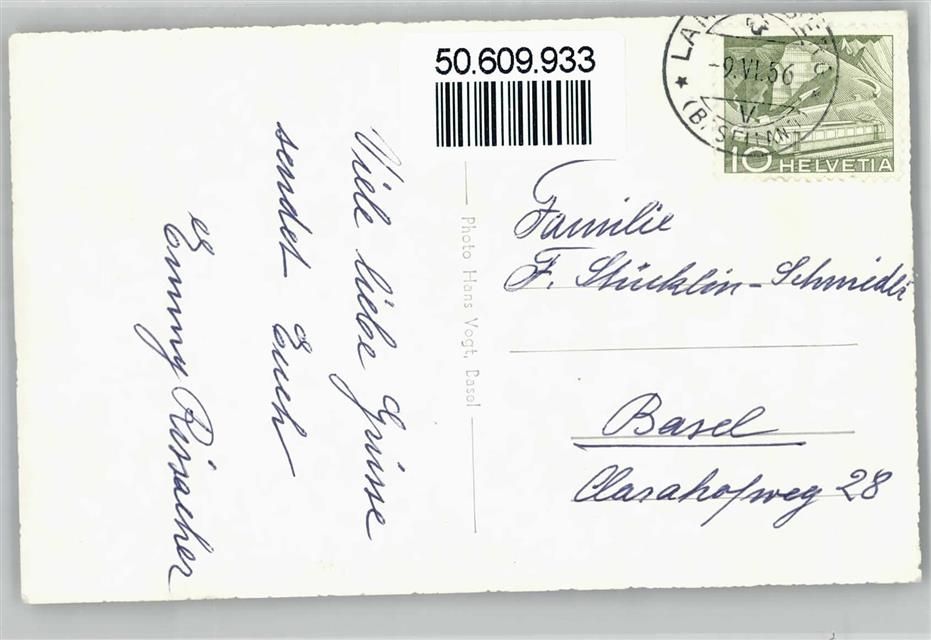 50.609.933
-9.VI.56
V.
(BASELLAND)
10 HELVETIA
Viele liebe Grüsse
sendet Euch
Emmy Rissacher
Photo Hans Vogt, Basel
Familie
F. Stücklin-Schmidli
Basel
Clarahofweg 28